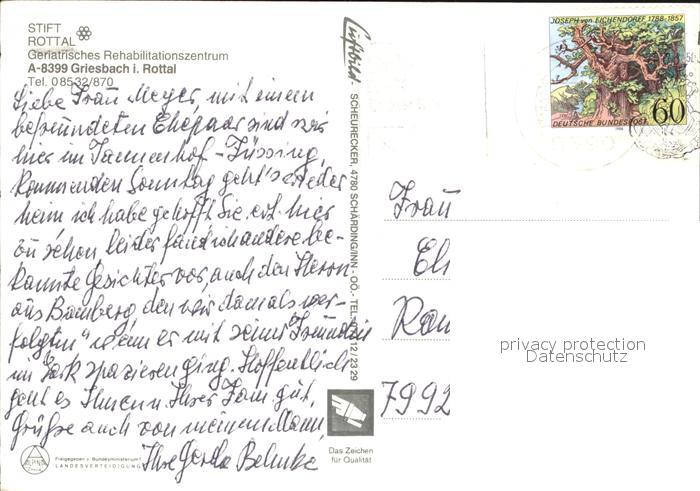 STIFT
ROTTAL
Geriatrisches Rehabilitationszentrum
A-8399 Griesbach i. Rottal
Tel. 0 85 32/870
Liebe Frau Meyer, mit einem
befreundeten Ehepaar sind wir
hier im Tannenhof - Füssing,
kommenden Sonntag geht's wieder
heim ich habe gehofft Sie evt hier
zu sehen leider fand ich andere be-
kannte Gesichter vor, auch den Herrn
aus Bamberg, den wir damals „ver-
folgten" wenn er mit seiner Freundin
im Park spazieren ging. Hoffentlich
geht es Ihnen u. Ihrer Fam gut,
Grüße auch von meinem Mann,
Ihre Gerda
Freigegeben v. Bundesministerium f.
LANDESVERTEIDIGUNG
ALPINA
Luftbild
SCHEURECKER, 4780 SCHÄRDING/INN - OÖ.-TEL. 12/23 29
Das Zeichen
für Qualität
JOSEPH von EICHENDORFF 1788-1857
60
DEUTSCHE BUNDESPOST
Frau
Eh
Ran
7992
privacy protection
Datenschutz